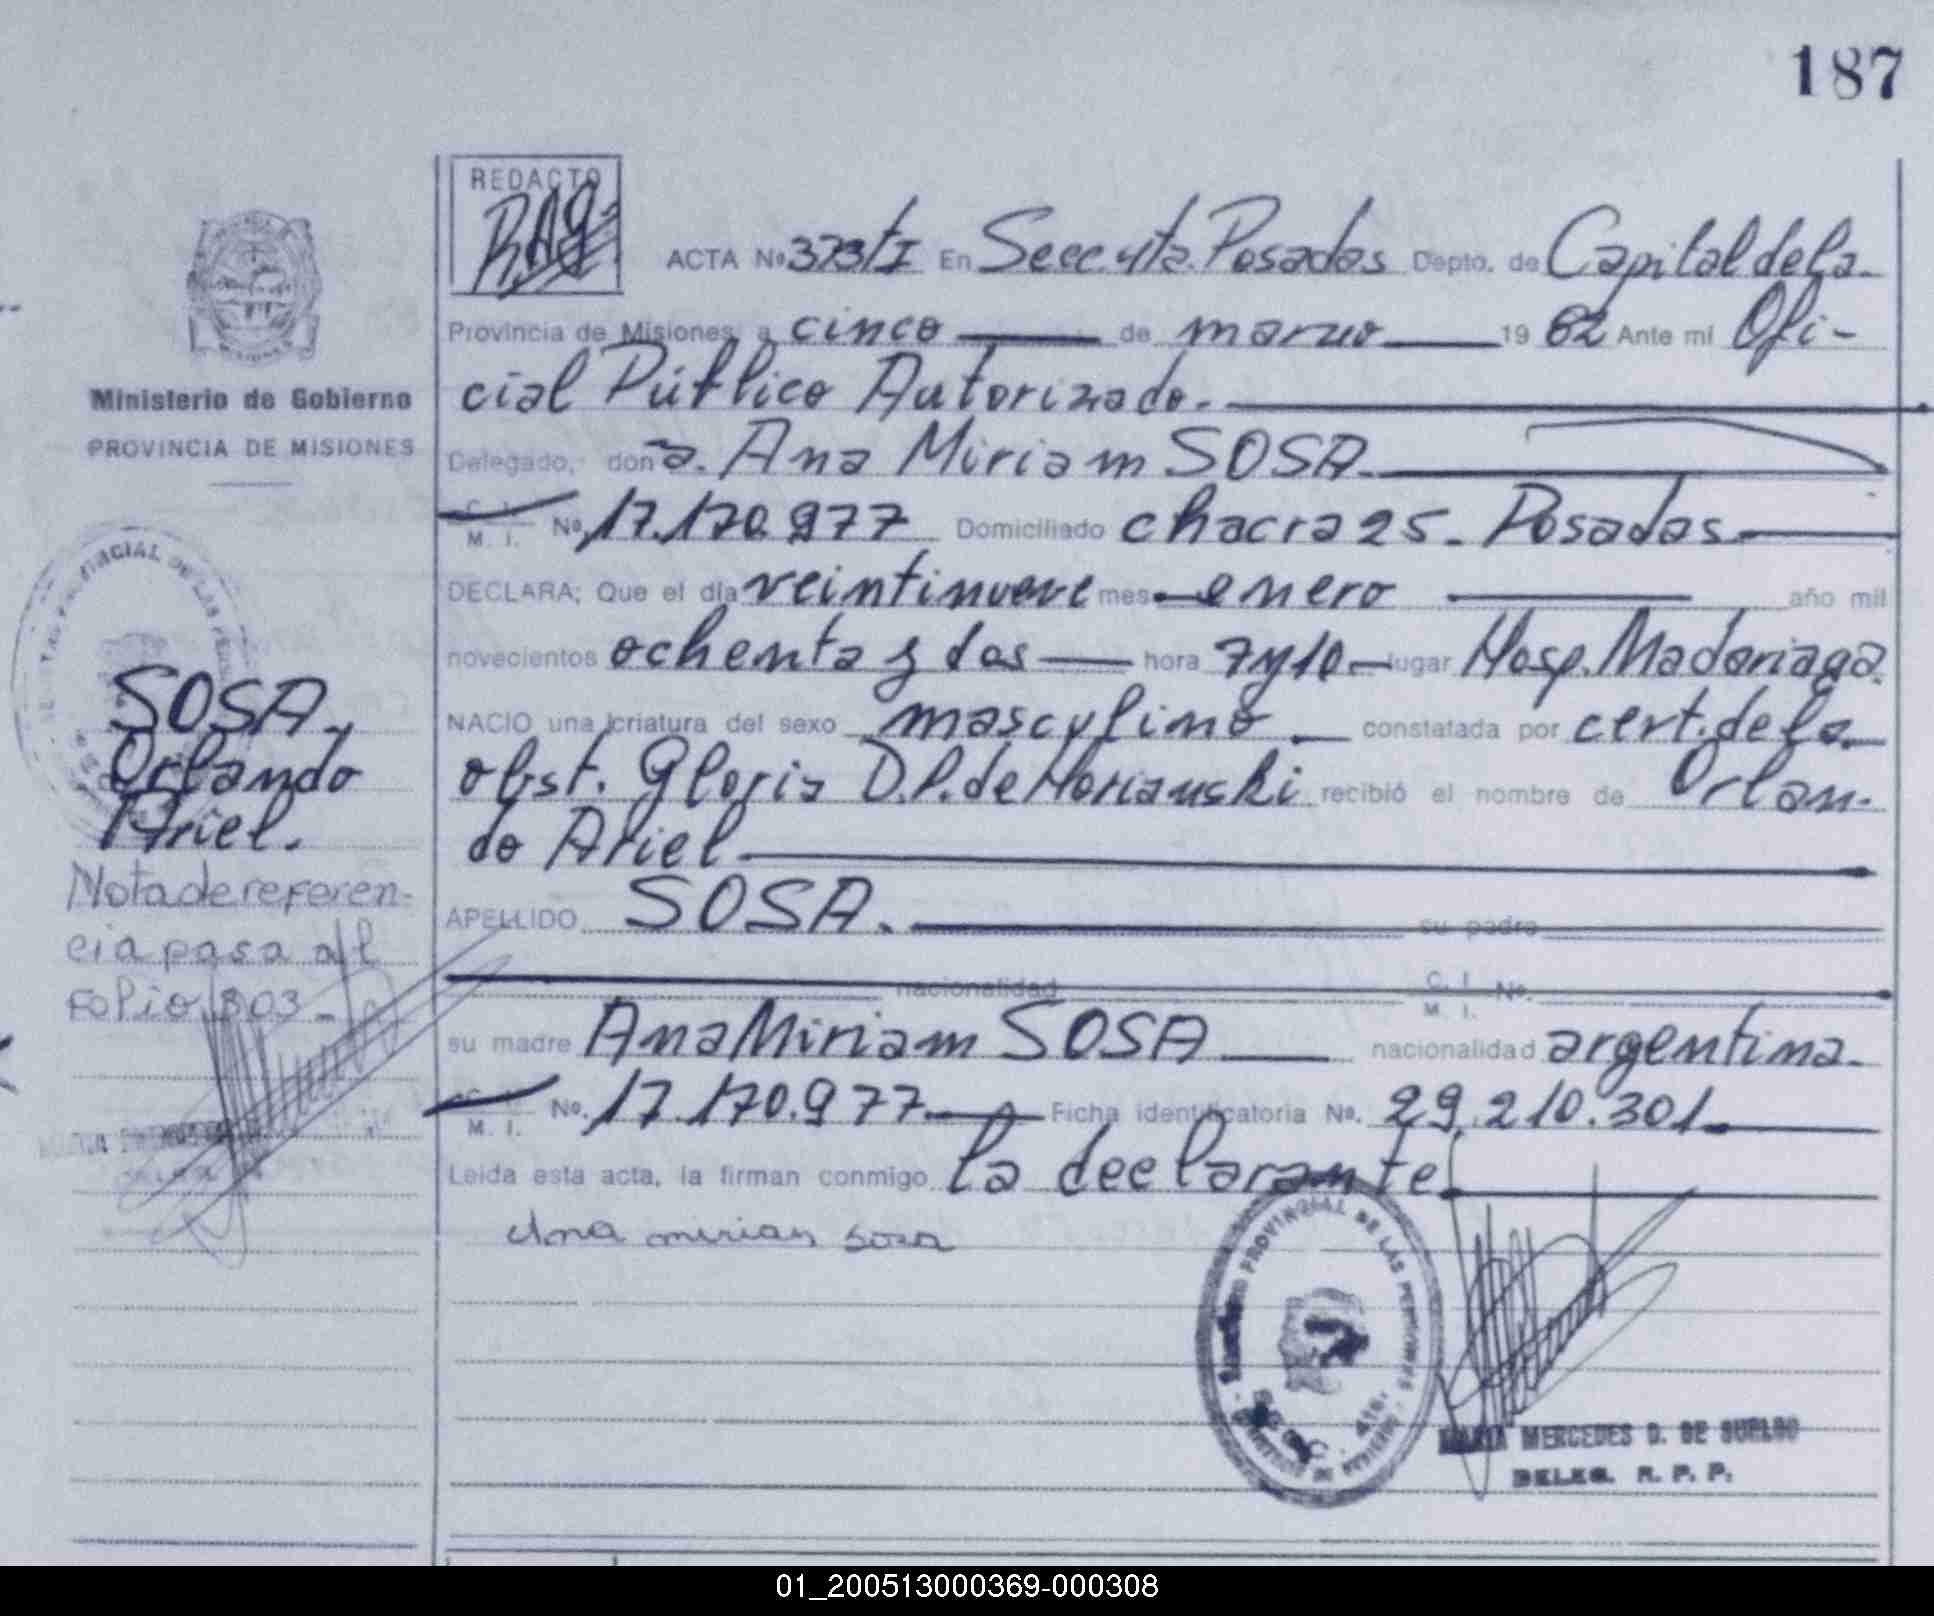 187
REDACTO
ACTA Nº 373 tI En Secc. 4ta. Posadas Depto. de Capital de la
Provincia de Misiones, a cinco de marzo 19 82 Ante mi Ofi-
cial Público Autorizado.
Delegado, don a. Ana Miriam SOSA.
C. I. M. I. Nº 17.170.977 Domiciliado chacra 25 - Posadas
DECLARA; Que el día veintinueve mes enero año mil
novecientos ochenta y dos hora 7 y 10 lugar Hosp. Madariaga.
NACIO una criatura del sexo masculino constatada por cert. de la
obst. Gloria D.P. de recibió el nombre de Orlan-
do Ariel
APELLIDO SOSA. su padre
nacionalidad C. I. M. I. Nº.
su madre Ana Miriam SOSA nacionalidad argentina
M. I. Nº. 17.170.977 Ficha identificatoria Nº. 29.210.301
Leída esta acta, la firman conmigo la declarante
Ana mirian sosa
PROVINCIAL DE LAS PERSONAS
SECC. 4ta.
MARIA MERCEDES D. DE SUELDO
DELEG. R. P. P.
Ministerio de Gobierno
PROVINCIA DE MISIONES
SOSA,
Orlando
Ariel.
Nota de referen-
cia pasa al
Folio 303 -
01_200513000369-000308